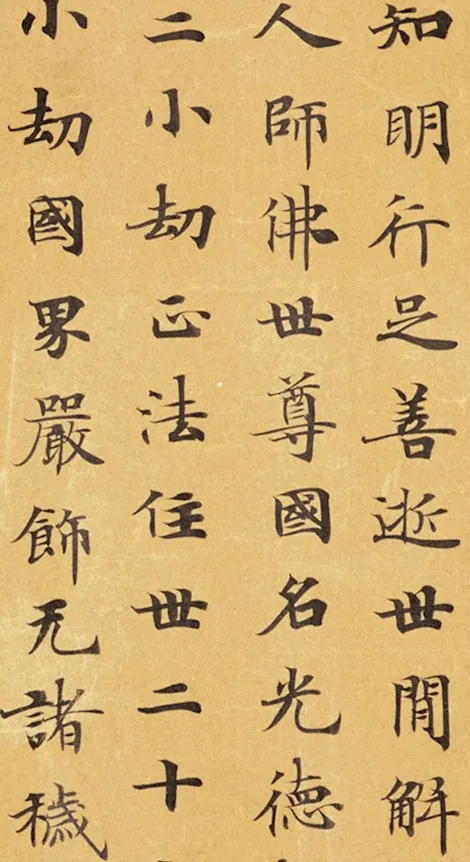 知明行足善逝世間解
人師佛世尊國名光德
二小劫正法住世二十
小劫國界嚴飾无諸穢